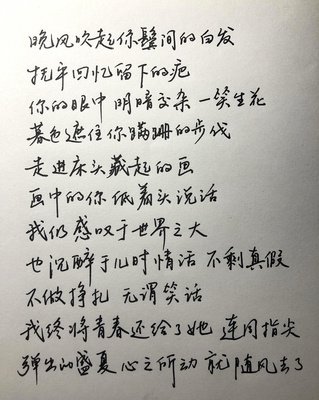 晚风吹起你鬓间的白发
抚平回忆留下的疤
你的眼中 明暗交杂 一笑生花
暮色遮住你蹒跚的步伐
走进床头藏起的画
画中的你 低着头说话
我仍感叹于世界之大
也沉醉于儿时情话 不剩真假
不做挣扎 无谓笑话
我终将青春还给了她 连同指尖
弹出的盛夏 心之所动 就随风去了